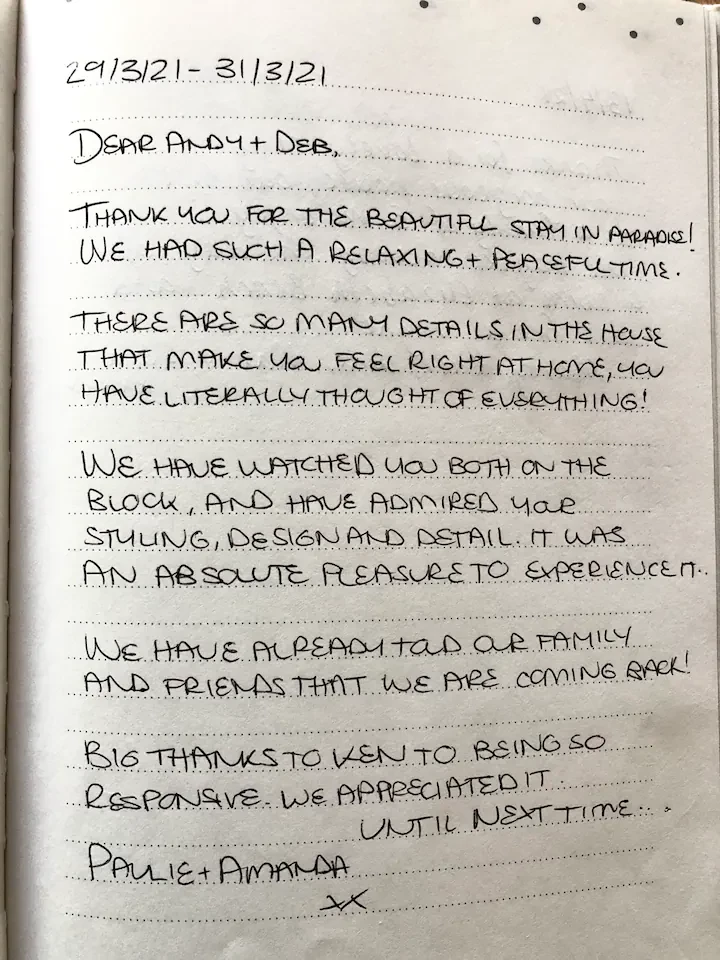 29/3/21 - 31/3/21
DEAR ANDY + DEB,
THANK YOU FOR THE BEAUTIFUL STAY IN PARADISE!
WE HAD SUCH A RELAXING + PEACEFUL TIME.
THERE ARE SO MANY DETAILS IN THE HOUSE
THAT MAKE YOU FEEL RIGHT AT HOME, YOU
HAVE LITERALLY THOUGHT OF EVERYTHING!
WE HAVE WATCHED YOU BOTH ON THE
BLOCK, AND HAVE ADMIRED YOUR
STYLING, DESIGN AND DETAIL. IT WAS
AN ABSOLUTE PLEASURE TO EXPERIENCE IT..
WE HAVE ALREADY TOLD OUR FAMILY
AND FRIENDS THAT WE ARE COMING BACK!
BIG THANKS TO KEN TO BEING SO
RESPONSIVE. WE APPRECIATED IT.
UNTIL NEXT TIME...
PAULIE + AMANDA
xx